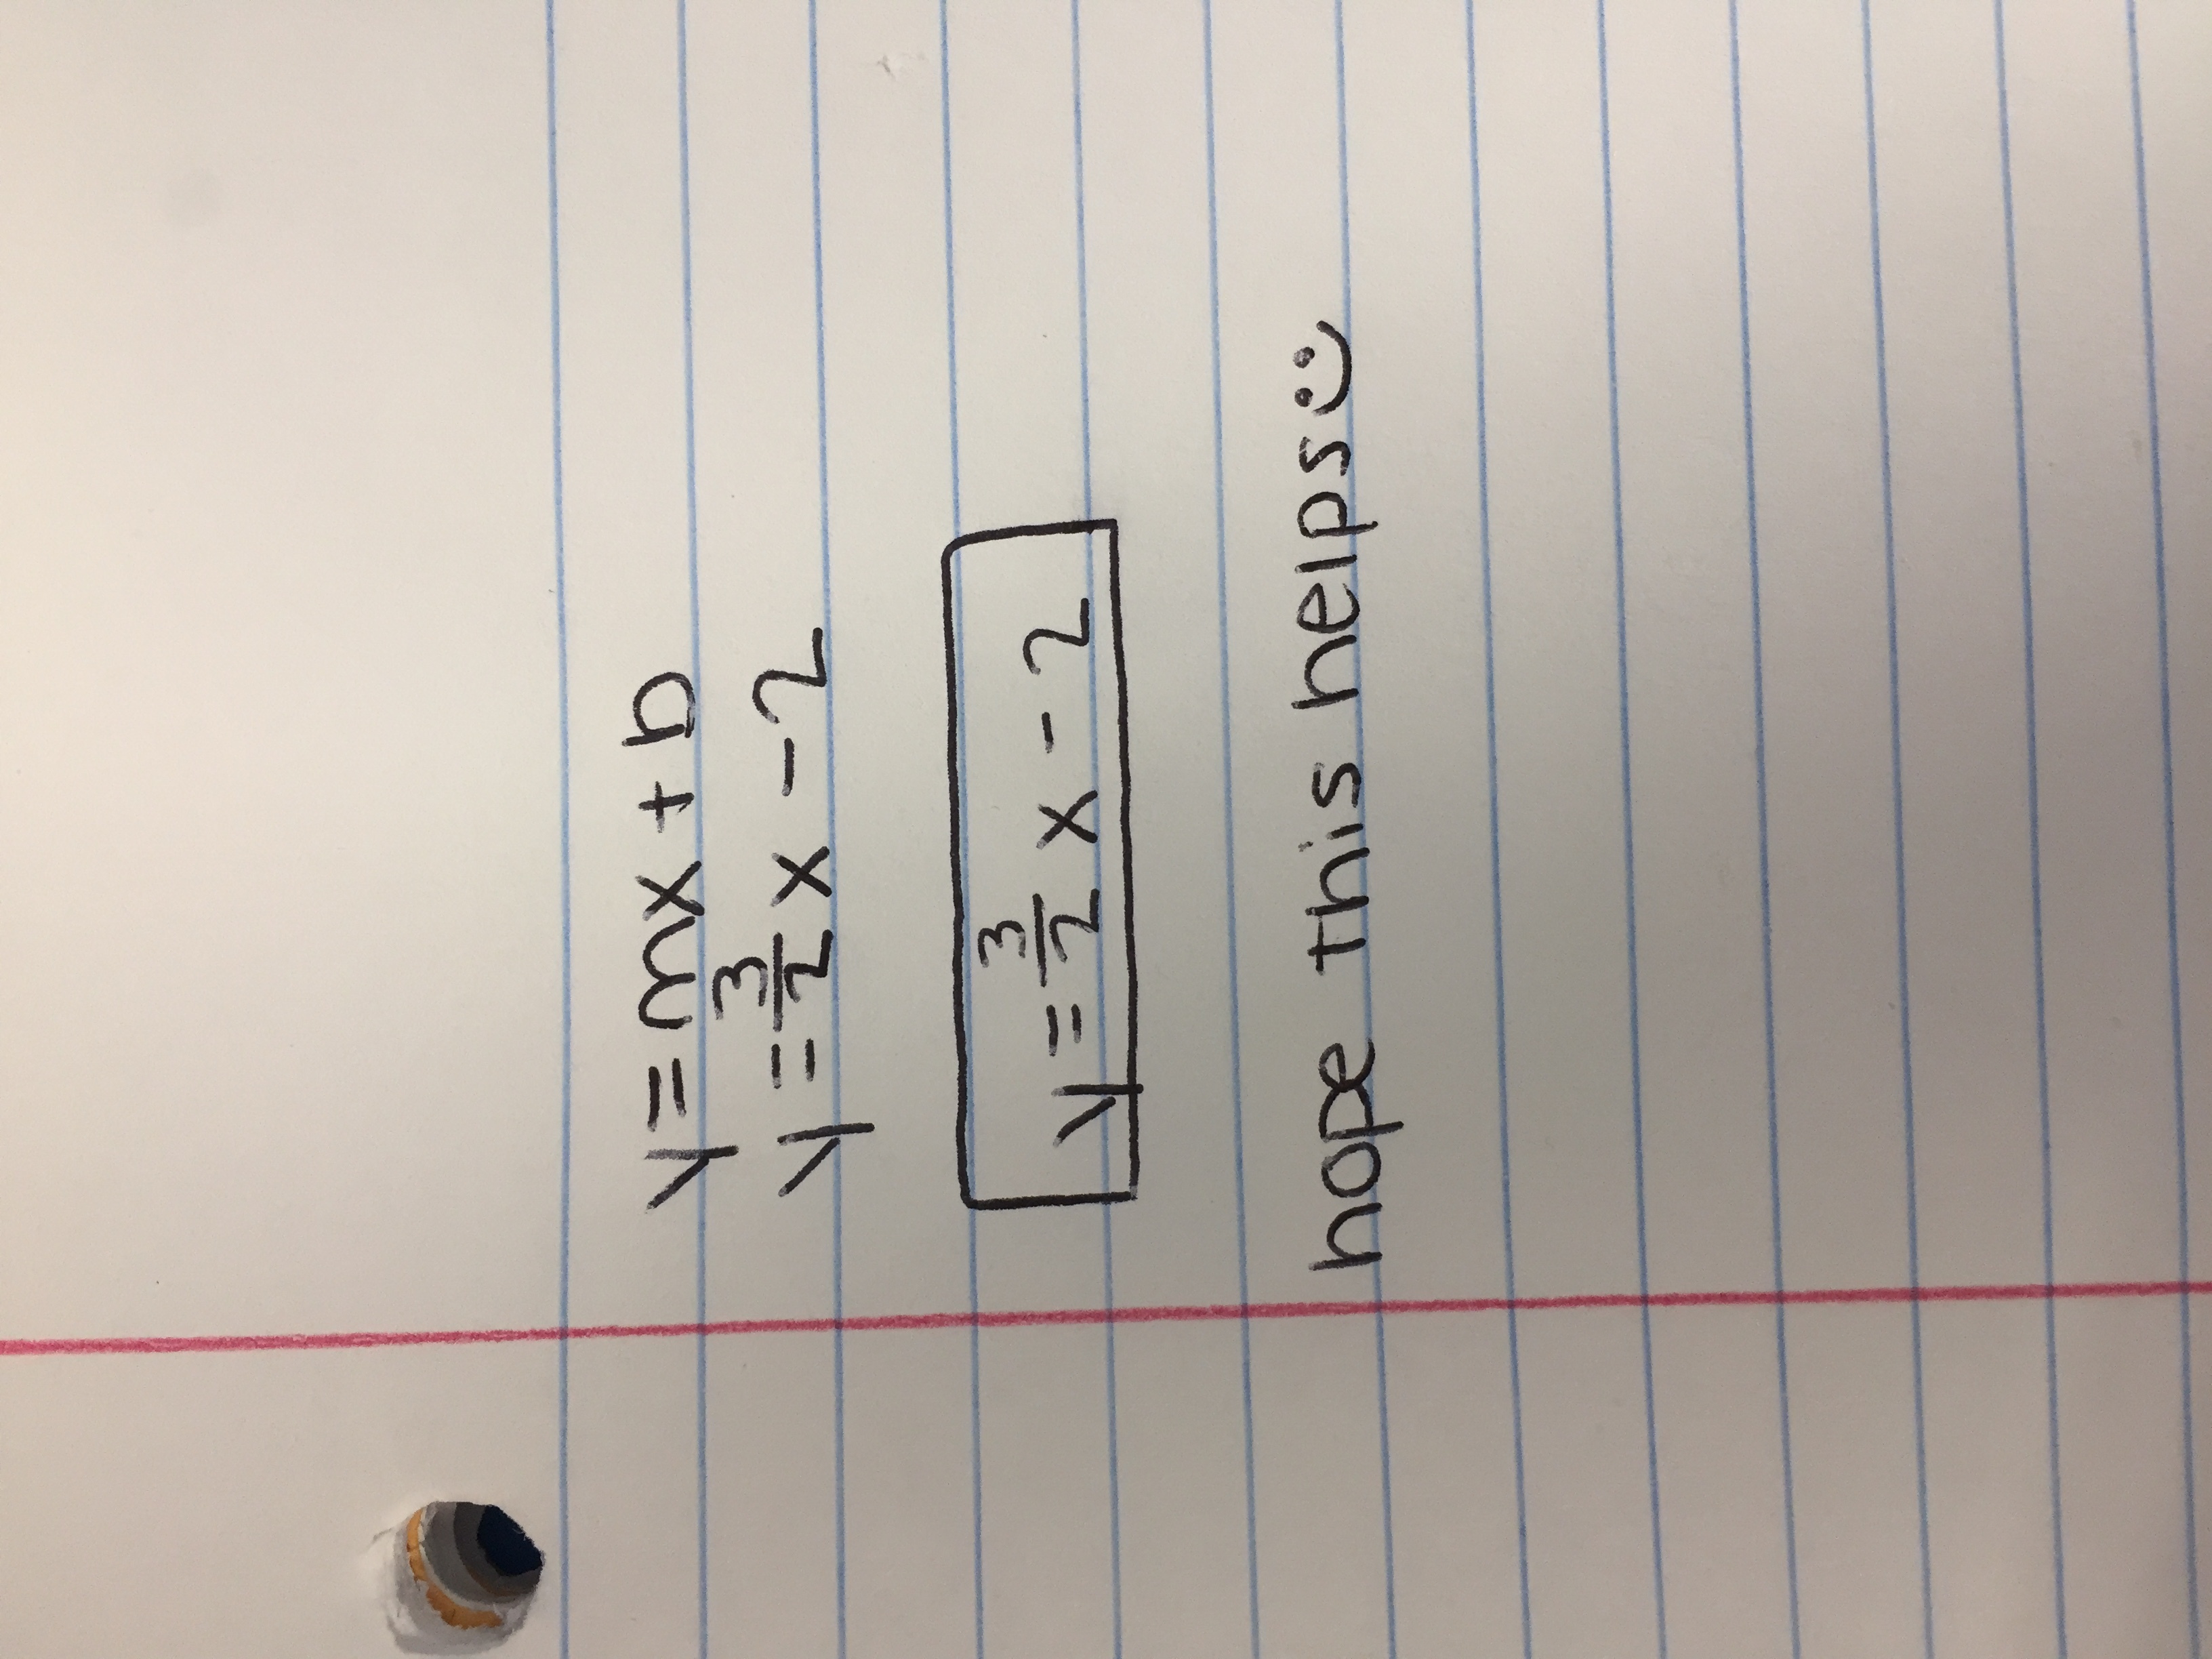 y = mx + b
y = 3/2 x - 2
y = 3/2 x - 2
hope this helps :)